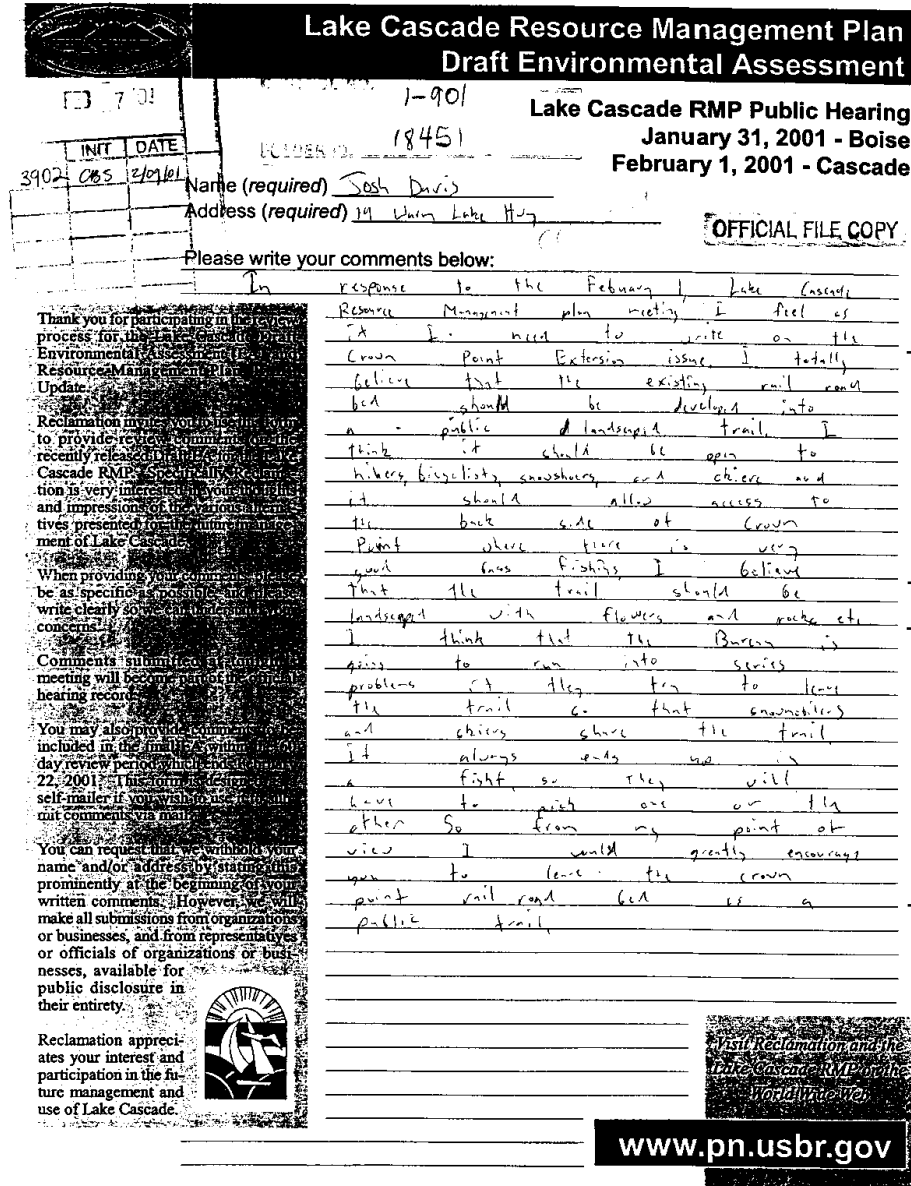 Lake Cascade Resource Management Plan
Draft Environmental Assessment
7 '01
1-901
18451
Lake Cascade RMP Public Hearing
January 31, 2001 - Boise
February 1, 2001 - Cascade
INIT DATE
3902 2/09/01
Name (required) Josh Davis
Address (required) 19 Warm Lake Hwy
OFFICIAL FILE COPY
Please write your comments below:
In response to the February 1, Lake Cascade
Resource Managment plan meeting I feel as
if I need to write on the
Crown Point Extension issue, I totally
believe that the existing rail road
bed should be developed into
a public landscaped trail, I
think it should be open to
hikers, bicyclists, snowshoers, and skiers and
it should allow access to
the back side of Crown
Point where there is very
good bass fishing, I believe
that the trail should be
landscaped with flowers and rocks etc.
I think that the Bureau is
going to run into series
problems if they try to leave
the trail so that snowmobilers
and skiers share the trail
It always ends up in
a fight, so they will
have to pick one or the
other So from my point of
view I would greatly encourage
you to leave the crown
point rail road bed as a
public trail,
Thank you for participating in the review
process for the Lake Cascade Draft
Environmental Assessment (EA) and
Resource Management Plan
Update.
Reclamation invites you to use this form
to provide review comments on the
recently released Draft EA for the Lake
Cascade RMP. Specifically, Reclama-
tion is very interested in your thoughts
and impressions of the various alterna-
tives presented for the future manage-
ment of Lake Cascade.
When providing your comments, please
be as specific as possible, and please
write clearly so we can understand your
concerns.
Comments submitted at tonight's
meeting will become part of the official
hearing record.
You may also provide comments to be
included in the final EA within the 60
day review period which ends February
22, 2001. This form is designed as a
self-mailer if you wish to use it to sub-
mit comments via mail.
You can request that we withhold your
name and/or address by stating this
prominently at the beginning of your
written comments. However, we will
make all submissions from organizations
or businesses, and from representatives
or officials of organizations or busi-
nesses, available for
public disclosure in
their entirety.
Reclamation appreci-
ates your interest and
participation in the fu-
ture management and
use of Lake Cascade.
Visit Reclamation and the
Lake Cascade RMP on the
World Wide Web
www.pn.usbr.gov